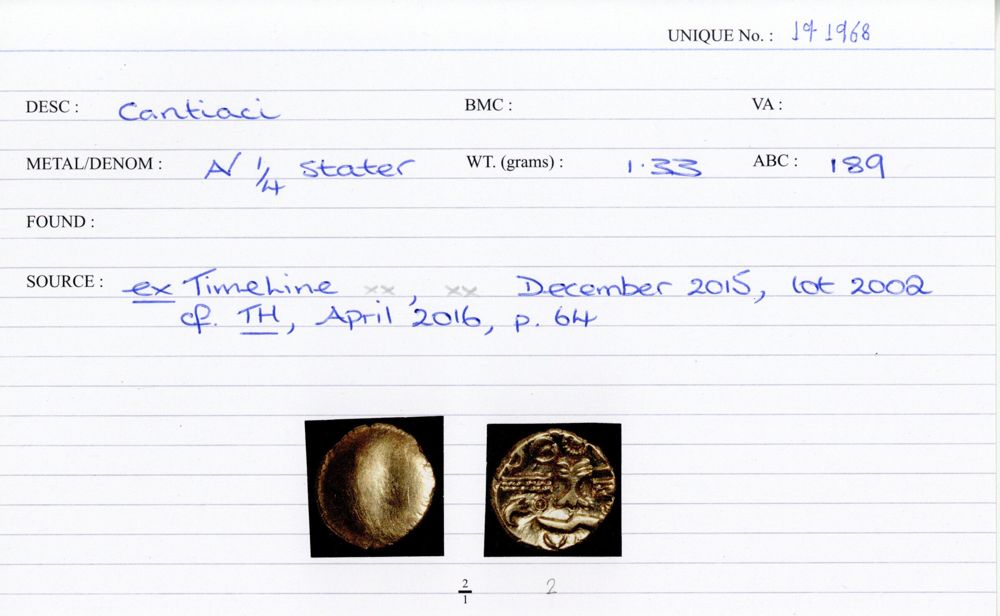 UNIQUE No. : 19 1968
DESC : Cantiaci BMC : VA :
METAL/DENOM : A/ 1/4 stater WT. (grams) : 1.33 ABC : 189
FOUND :
SOURCE : ex TimeLine xx, xx December 2015, lot 2002
cf. TH, April 2016, p. 64
2/1 2